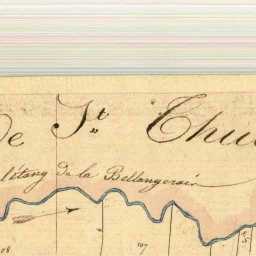 de St. Thu
l'étang de la Bellangerais
108
107